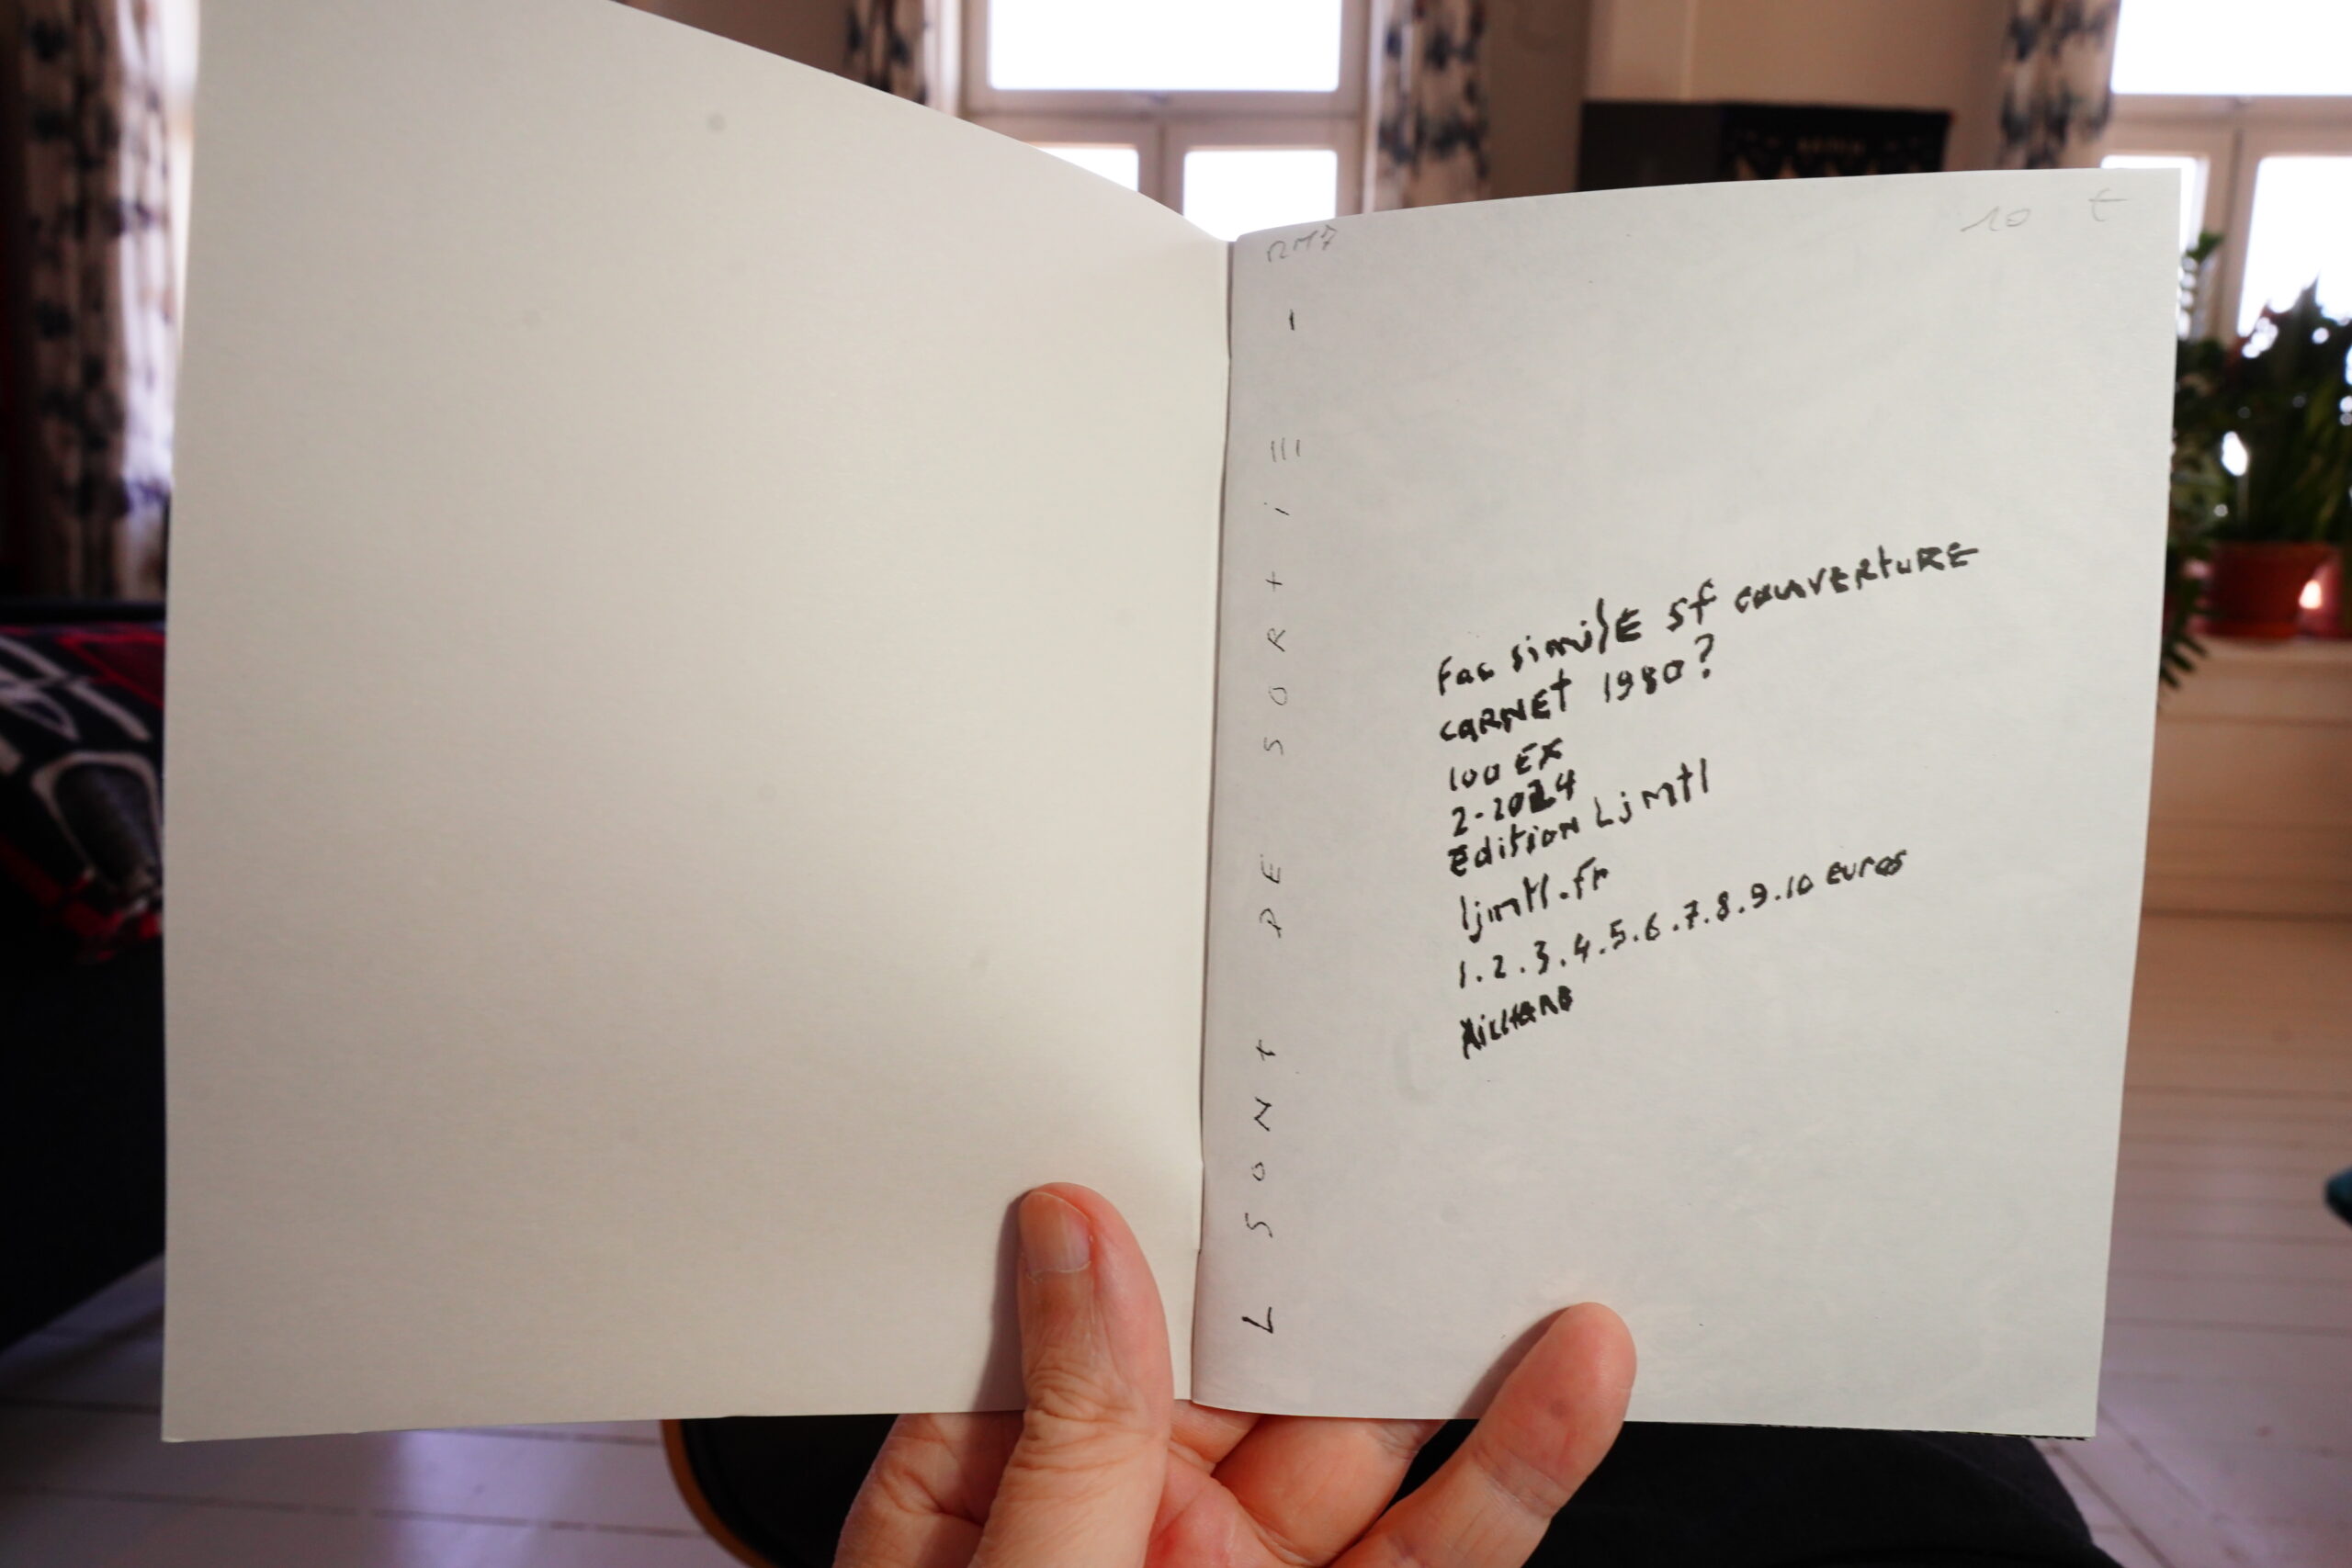 10 €
L SONT DE SORTIE -
Fac similE sf couvERtuRE
CARNEt 1980?
100 EX
2-2024
Edition Ljmtl
ljmtl.fr
1.2.3.4.5.6.7.8.9.10 euros